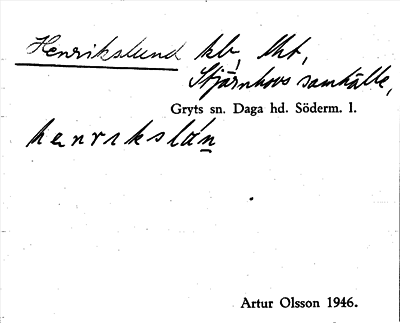 Henrikslund kb, lht,
Stjärnhovs samhälle,
Gryts sn. Daga hd. Söderm. l.
henrikslán
Artur Olsson 1946.